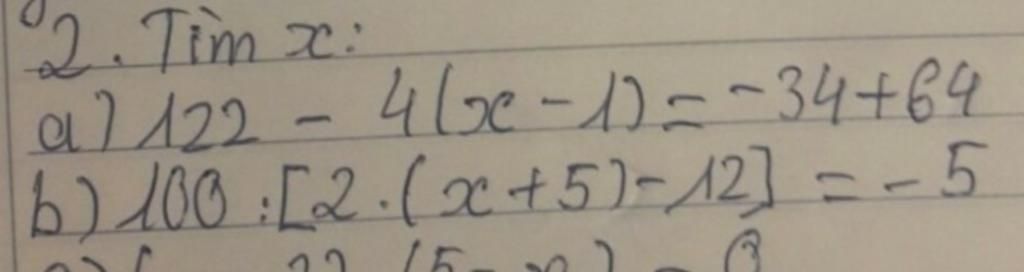 2. Tìm x:
a) 122 - 4(x - 1) = -34 + 64
b) 100 : [2 . (x + 5) - 12] = - 5